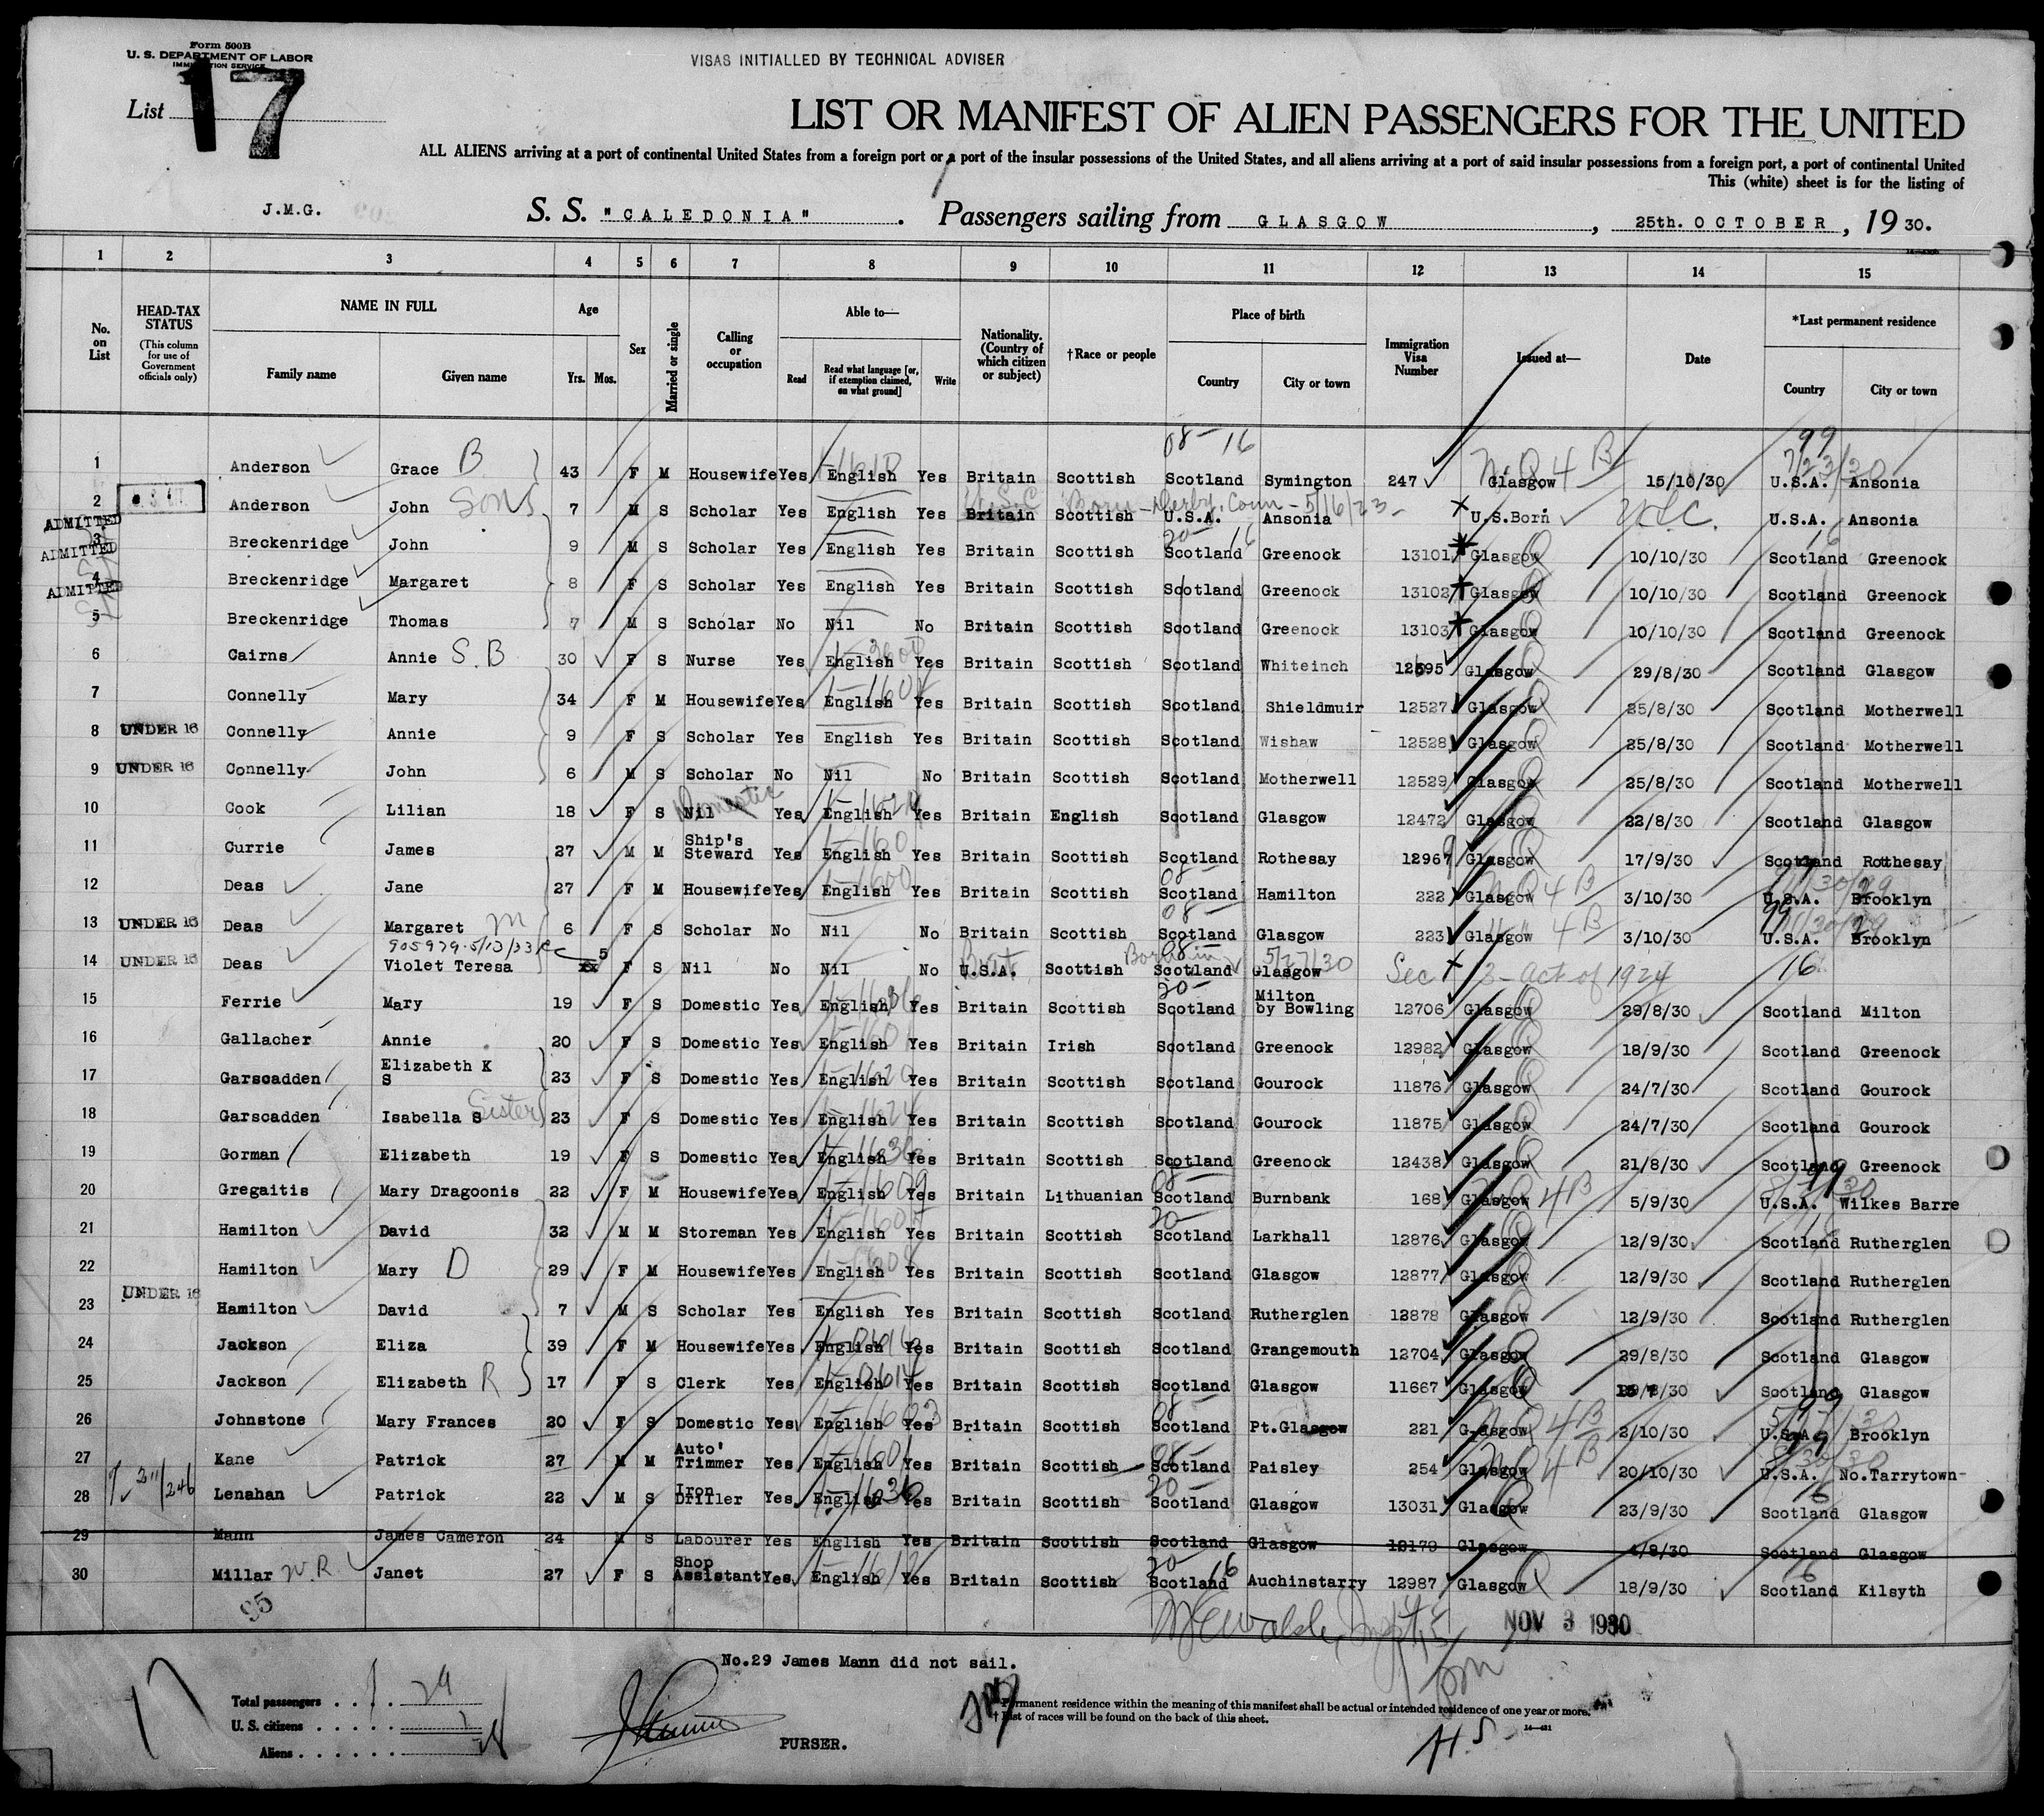 Form 500B
U. S. DEPARTMENT OF LABOR
IMMIGRATION SERVICE
VISAS INITIALLED BY TECHNICAL ADVISER
List 17
LIST OR MANIFEST OF ALIEN PASSENGERS FOR THE UNITED
ALL ALIENS arriving at a port of continental United States from a foreign port or a port of the insular possessions of the United States, and all aliens arriving at a port of said insular possessions from a foreign port, a port of continental United
This (white) sheet is for the listing of
J.M.G. S. S. "CALEDONIA". Passengers sailing from GLASGOW, 25th. OCTOBER, 1930.
1 2 3 4 5 6 7 8 9 10 11 12 13 14 15
No. on List HEAD-TAX STATUS (This column for use of Government officials only) NAME IN FULL Family name Given name Age Yrs. Mos. Sex Married or single Calling or occupation Able to— Read Read what language [or, if exemption claimed, on what ground] Write Nationality. (Country of which citizen or subject) †Race or people Place of birth Country City or town Immigration Visa Number Issued at— Date *Last permanent residence Country City or town
08- 16 99
1 Anderson Grace B 43 F M Housewife Yes English Yes Britain Scottish Scotland Symington 247 Glasgow 4B 15/10/30 U.S.A. Ansonia
2 Anderson John Sons 7 M S Scholar Yes English Yes Britain Scottish U.S.A. Ansonia U.S.Born U.S.C. U.S.A. Ansonia
U.S.C Born - Derby, Conn - 5/16/23
ADMITTED
3 Breckenridge John 9 M S Scholar Yes English Yes Britain Scottish Scotland Greenock 13101 Glasgow 10/10/30 Scotland Greenock
ADMITTED
4 Breckenridge Margaret 8 F S Scholar Yes English Yes Britain Scottish Scotland Greenock 13102 Glasgow 10/10/30 Scotland Greenock
ADMITTED
5 Breckenridge Thomas 7 M S Scholar No Nil No Britain Scottish Scotland Greenock 13103 Glasgow 10/10/30 Scotland Greenock
6 Cairns Annie S.B 30 F S Nurse Yes English Yes Britain Scottish Scotland Whiteinch 12695 Glasgow 29/8/30 Scotland Glasgow
7 Connelly Mary 34 F M Housewife Yes English Yes Britain Scottish Scotland Shieldmuir 12527 Glasgow 25/8/30 Scotland Motherwell
8 UNDER 16 Connelly Annie 9 F S Scholar Yes English Yes Britain Scottish Scotland Wishaw 12528 Glasgow 25/8/30 Scotland Motherwell
9 UNDER 16 Connelly John 6 M S Scholar No Nil No Britain Scottish Scotland Motherwell 12529 Glasgow 25/8/30 Scotland Motherwell
10 Cook Lilian 18 F S Nil Domestic Yes English Yes Britain English Scotland Glasgow 12472 Glasgow 22/8/30 Scotland Glasgow
11 Currie James 27 M M Ship's Steward Yes English Yes Britain Scottish Scotland Rothesay 12967 Glasgow 17/9/30 Scotland Rothesay
12 Deas Jane 27 F M Housewife Yes English Yes Britain Scottish Scotland Hamilton 222 Glasgow 4B 3/10/30 U.S.A. Brooklyn
13 UNDER 16 Deas Margaret M 6 F S Scholar No Nil No Britain Scottish Scotland Glasgow 223 Glasgow 4B 3/10/30 U.S.A. Brooklyn
905979-5/13/33
14 UNDER 16 Deas Violet Teresa 5 F S Nil No Nil No U.S.A. Brit Scottish Scotland Glasgow Born in 5/27/30 Sec 13 - act of 1924 16
15 Ferrie Mary 19 F S Domestic Yes English Yes Britain Scottish Scotland Milton by Bowling 12706 Glasgow 29/8/30 Scotland Milton
16 Gallacher Annie 20 F S Domestic Yes English Yes Britain Irish Scotland Greenock 12982 Glasgow 18/9/30 Scotland Greenock
17 Garscadden Elizabeth K S 23 F S Domestic Yes English Yes Britain Scottish Scotland Gourock 11876 Glasgow 24/7/30 Scotland Gourock
18 Garscadden Isabella S Sister 23 F S Domestic Yes English Yes Britain Scottish Scotland Gourock 11875 Glasgow 24/7/30 Scotland Gourock
19 Gorman Elizabeth 19 F S Domestic Yes English Yes Britain Scottish Scotland Greenock 12438 Glasgow 21/8/30 Scotland Greenock
20 Gregaitis Mary Dragoonis 22 F M Housewife Yes English Yes Britain Lithuanian Scotland Burnbank 168 Glasgow 4B 5/9/30 U.S.A. Wilkes Barre
21 Hamilton David 32 M M Storeman Yes English Yes Britain Scottish Scotland Larkhall 12876 Glasgow 12/9/30 Scotland Rutherglen
22 Hamilton Mary D 29 F M Housewife Yes English Yes Britain Scottish Scotland Glasgow 12877 Glasgow 12/9/30 Scotland Rutherglen
23 UNDER 16 Hamilton David 7 M S Scholar Yes English Yes Britain Scottish Scotland Rutherglen 12878 Glasgow 12/9/30 Scotland Rutherglen
24 Jackson Eliza 39 F M Housewife Yes English Yes Britain Scottish Scotland Grangemouth 12704 Glasgow 29/8/30 Scotland Glasgow
25 Jackson Elizabeth R 17 F S Clerk Yes English Yes Britain Scottish Scotland Glasgow 11667 Glasgow Scotland Glasgow
26 Johnstone Mary Frances 20 F S Domestic Yes English Yes Britain Scottish Scotland Pt.Glasgow 221 Glasgow 4B 2/10/30 U.S.A. Brooklyn
27 Kane Patrick 27 M M Auto' Trimmer Yes English Yes Britain Scottish Scotland Paisley 254 Glasgow 4B 20/10/30 U.S.A. No.Tarrytown
28 Lenahan Patrick 22 M S Iron Driller Yes English Yes Britain Scottish Scotland Glasgow 13031 Glasgow 23/9/30 Scotland Glasgow
29 Mann James Cameron 24 M S Labourer Yes English Yes Britain Scottish Scotland Glasgow 12179 Glasgow 4/8/30 Scotland Glasgow
30 Millar W.R. Janet 27 F S Shop Assistant Yes English Yes Britain Scottish Scotland Auchinstarry 12987 Glasgow 18/9/30 Scotland Kilsyth
95
NOV 3 1930
No.29 James Mann did not sail.
17
Total passengers . . . . 29
U. S. citizens . . . . . 1
Aliens . . . . . .
PURSER.
* Permanent residence within the meaning of this manifest shall be actual or intended residence of one year or more.
† List of races will be found on the back of this sheet.
H.S.